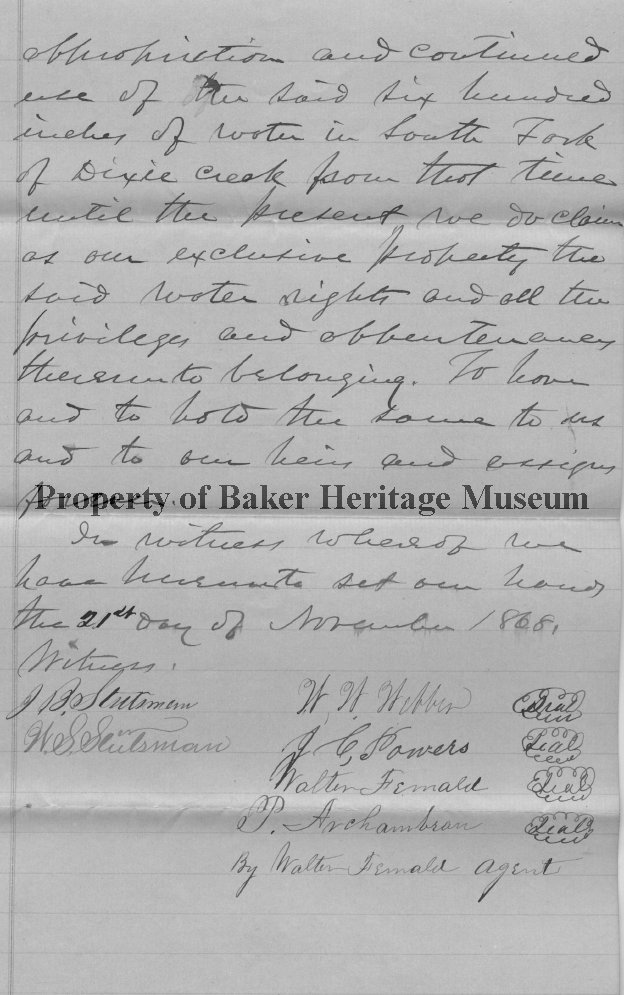 appropriation and continued
use of the said six hundred
inches of water in South Fork
of Dixie creek from that time
until the present we do claim
as our exclusive property the
said water rights and all the
privileges and appurtenances
thereunto belonging. To have
and to hold the same to us
and to our heirs and assigns
forever.
Property of Baker Heritage Museum
In witness whereof we
have hereunto set our hands
the 21st Day of November 1868.
Witness.
J B. Stutsman W. W. Webber Seal
W. S. Stutsman J C, Powers Seal
Walter Fernald Seal
P. Archambeau Seal
By Walter Fernald Agent